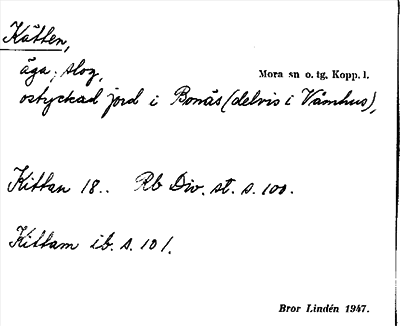 Kätten,
äga, slog,
Mora sn o. tg, Kopp. l.
ostyckad jord i Bonäs (delvis i Våmhus),
Kittan 18.. Rb Div. st. s. 100.
Kittam ib. s. 101.
Bror Lindén 1947.